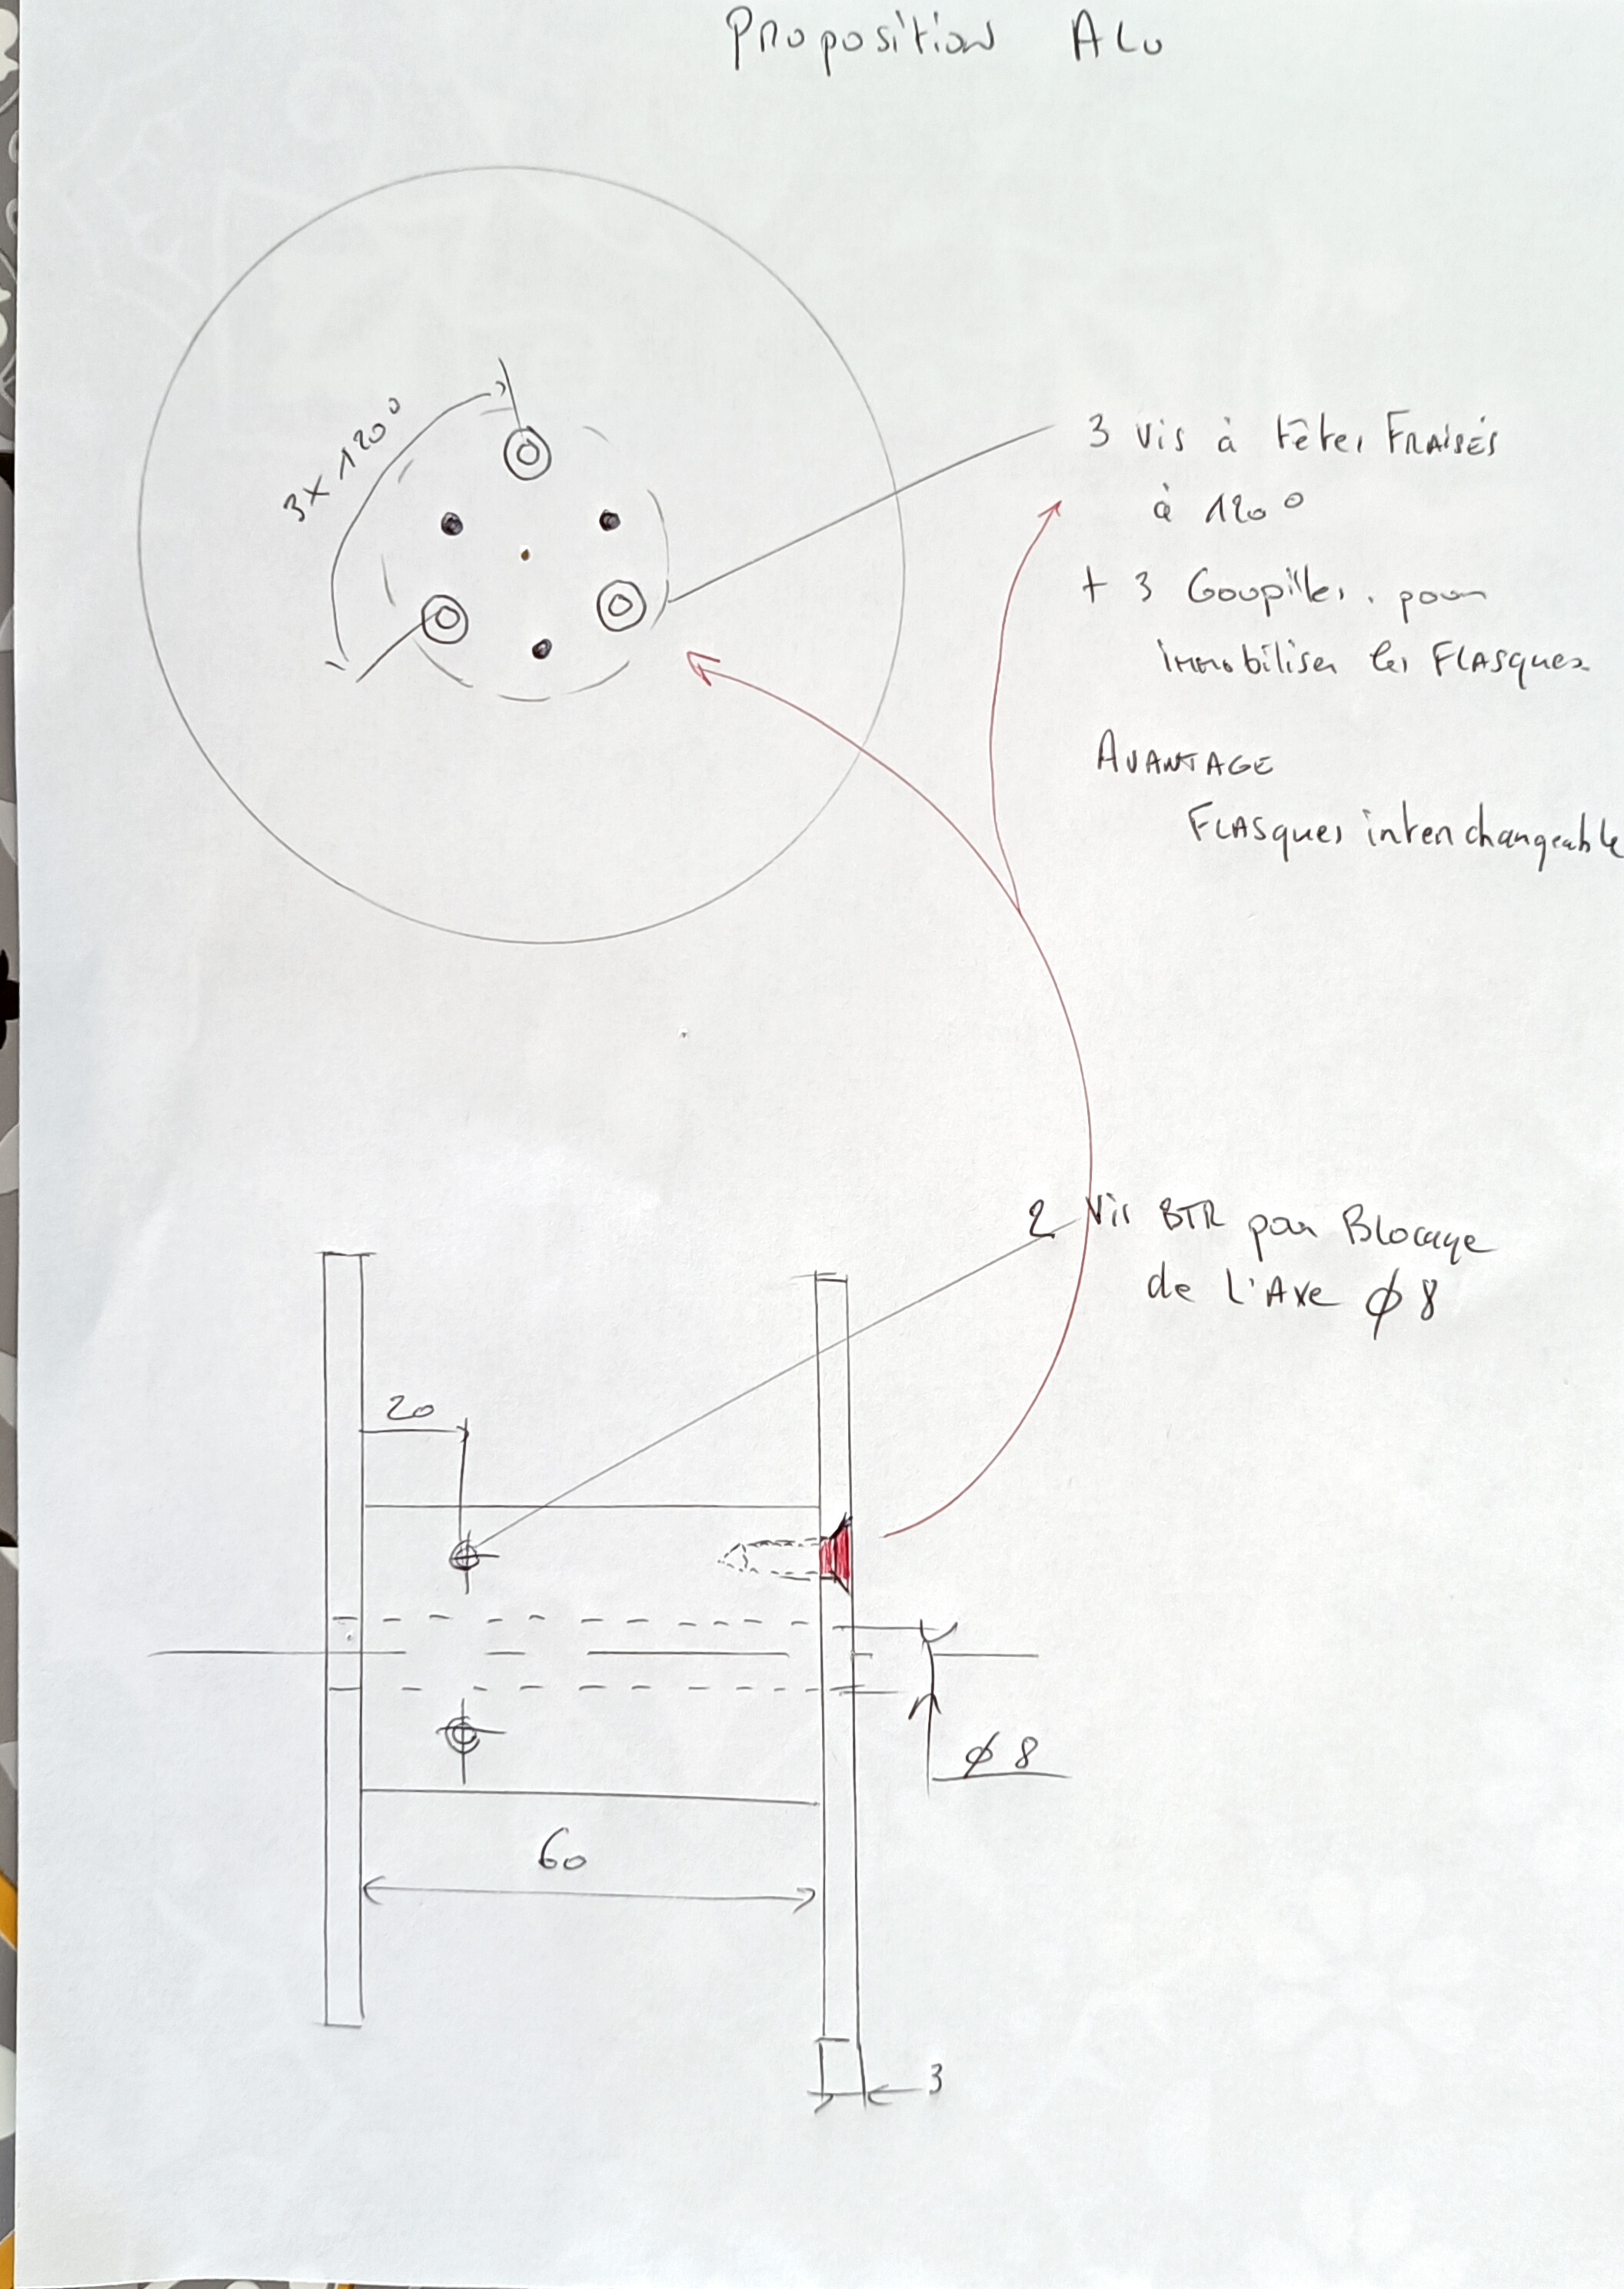 Proposition ALU
3 x 120°
3 vis à têtes FRAISÉS
à 120°
+ 3 Goupilles. pour
immobiliser les FLASques
AVANTAGE
FLASques interchangeable
2 Vis BTR pour Blocage
de l'AXe ø 8
20
ø 8
60
3